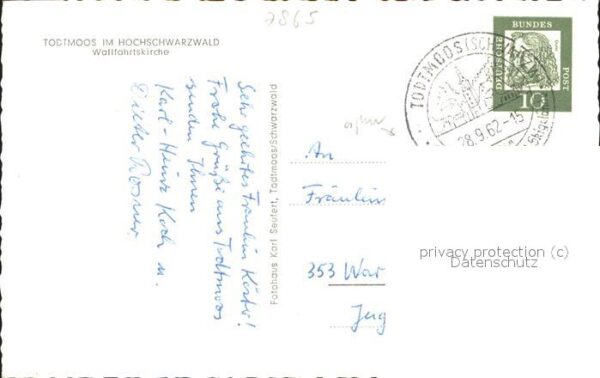 7865
TODTMOOS IM HOCHSCHWARZWALD
Wallfahrtskirche
Sehr geehrtes Fräulein Köster!
Frohe Grüße aus Todtmoos
senden Ihnen
Karl-Heinz Koch u.
Dieter Rosner
Fotohaus Karl Seufert, Todtmoos/Schwarzwald
An
Fräulein
353 War
Jug
DEUTSCHE BUNDES POST
10
TODTMOOS (SCHW
28.9.62-15
privacy protection (c)
Datenschutz